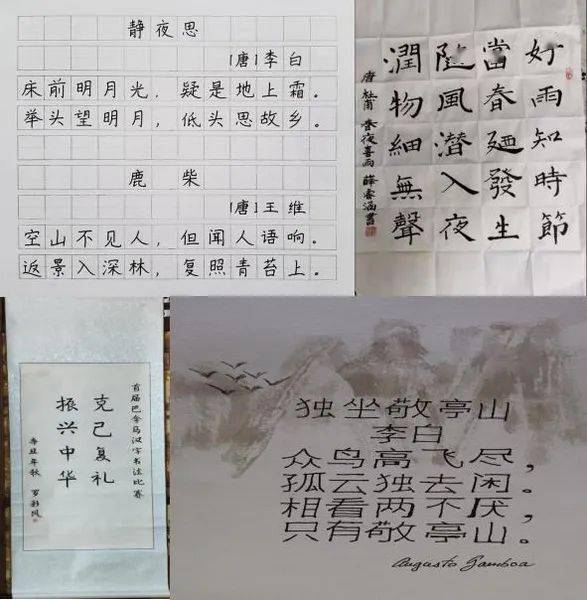 静夜思
[唐]李白
床前明月光，疑是地上霜。
举头望明月，低头思故乡。
鹿柴
[唐]王维
空山不见人，但闻人语响。
返景入深林，复照青苔上。
好雨知時節
當春廼發生
随風潜入夜
潤物細無聲
唐 杜甫 春夜喜雨 薛睿涵書
首届巴拿马汉字书法比赛
克己复礼
振兴中华
辛丑年秋 罗彩凤
独坐敬亭山
李白
众鸟高飞尽，
孤云独去闲。
相看两不厌，
只有敬亭山。
Augusto Gamboa